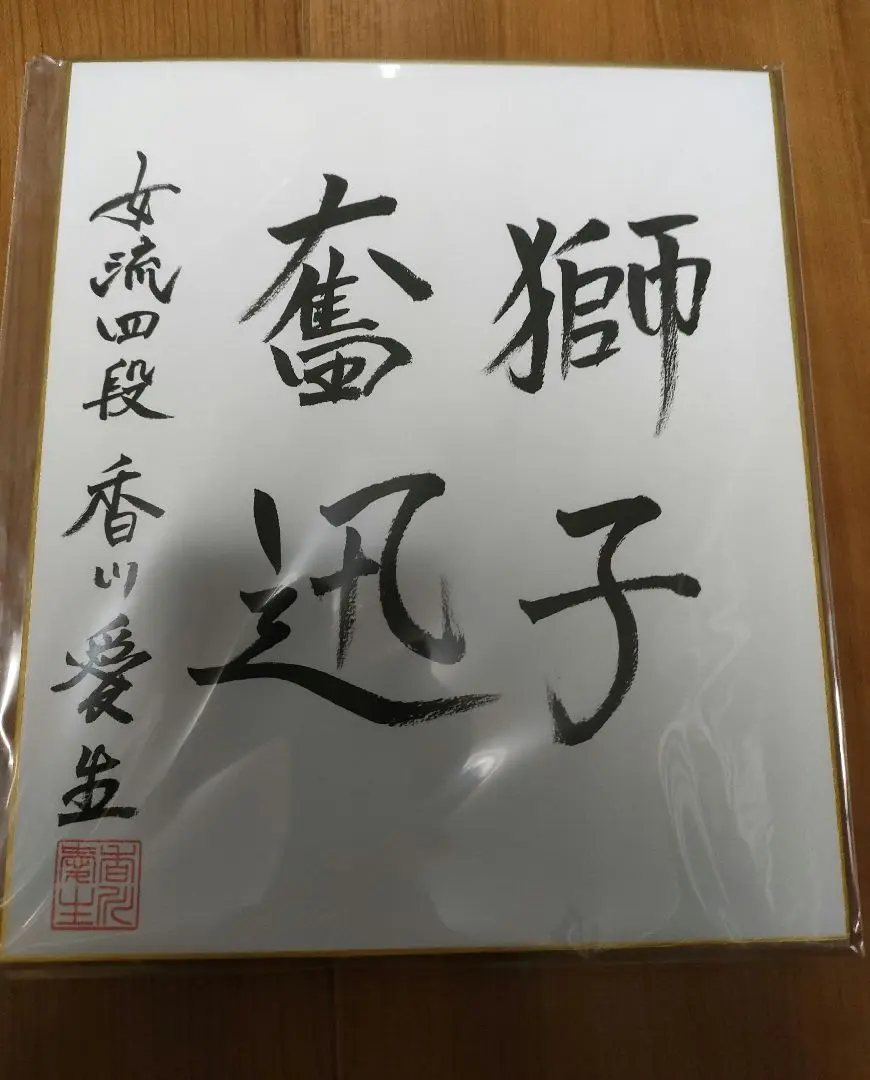 獅子
奮迅
女流四段 香川愛生
香川愛生